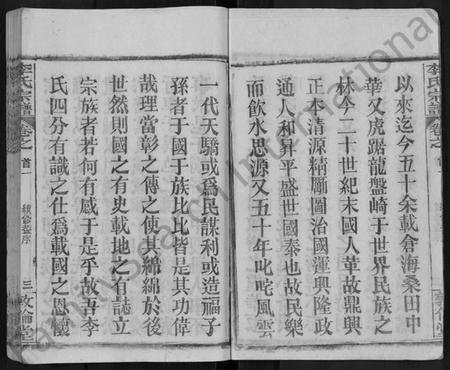 李氏宗譜
卷之
首一
以來迄今五十余載倉海桑田中
華又虎踞龍盤崎于世界民族之
林今二十世紀末國人革故鼎興
正本清源精勵圖治國運興隆政
通人和昇平盛世國泰也故民樂
而飲水思源又五十年叱咤風雲
一代天驕或爲民謀利或造福子
孫者于國于族比比皆是其功偉
哉理當彰之傳之使其綿綿於後
世然則國之有史載地之有誌立
宗族者若何有感于是乎故吾李
氏四分有識之仕爲載國之恩懷
李氏宗譜
卷之
首一
續修譜序
三
敦倫堂
FamilySearch International